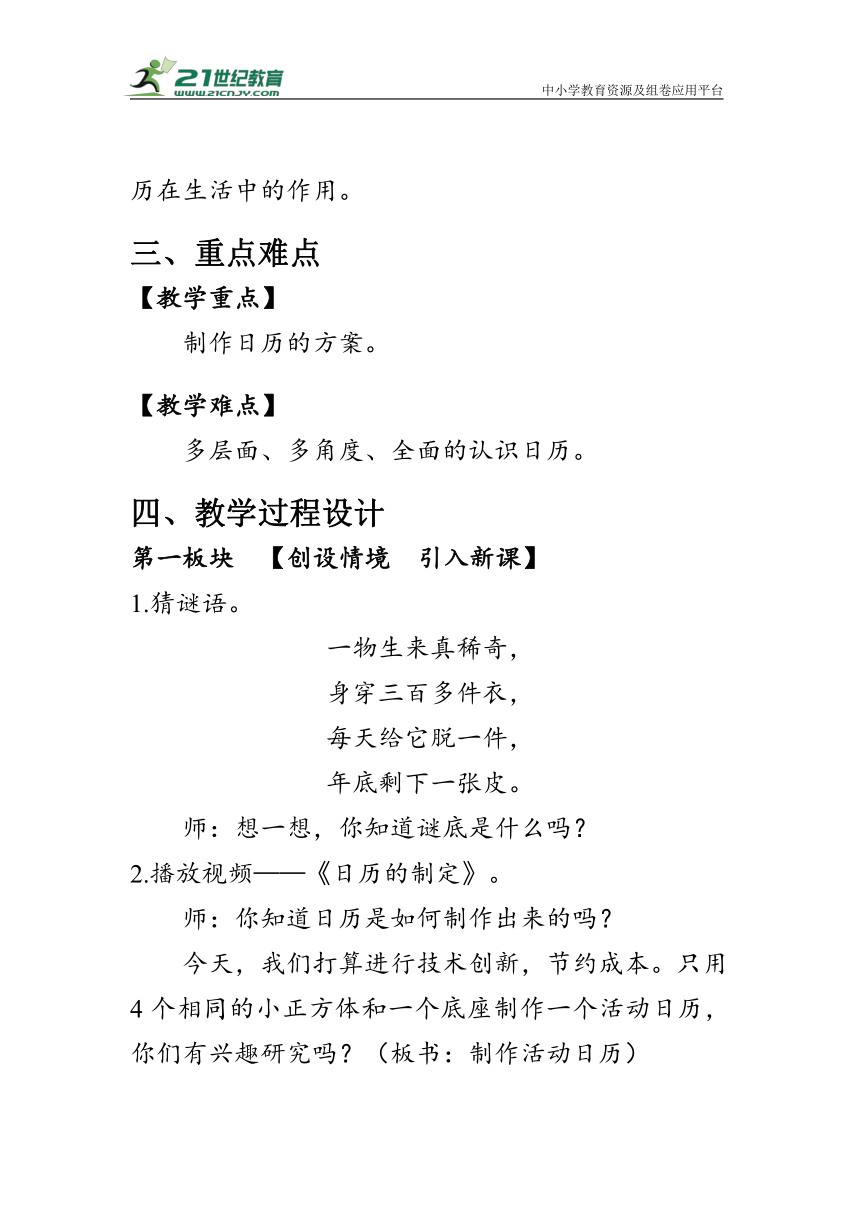 21世纪教育
WWW.21CNJY.COM
中小学教育资源及组卷应用平台
历在生活中的作用。
三、重点难点
【教学重点】
制作日历的方案。
【教学难点】
多层面、多角度、全面的认识日历。
四、教学过程设计
第一板块 【创设情境 引入新课】
1.猜谜语。
一物生来真稀奇，
身穿三百多件衣，
每天给它脱一件，
年底剩下一张皮。
师：想一想，你知道谜底是什么吗？
2.播放视频——《日历的制定》。
师：你知道日历是如何制作出来的吗？
今天，我们打算进行技术创新，节约成本。只用
4 个相同的小正方体和一个底座制作一个活动日历，
你们有兴趣研究吗？（板书：制作活动日历）